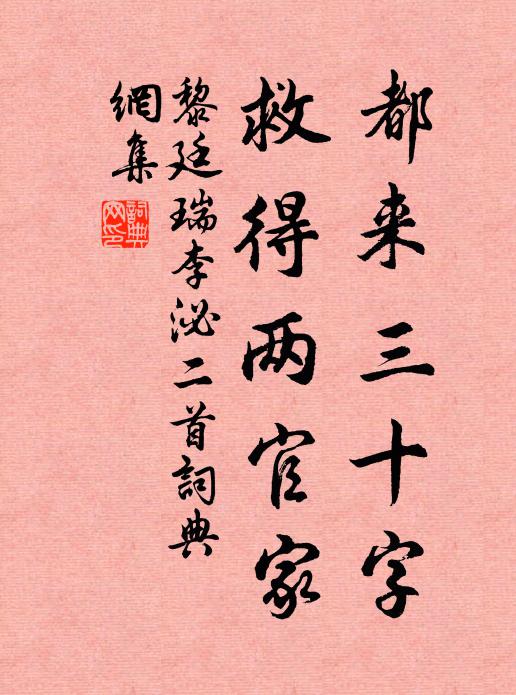 都来三十字
救得两官家
黎廷瑞李泌二首詞典
網集
詞典网印